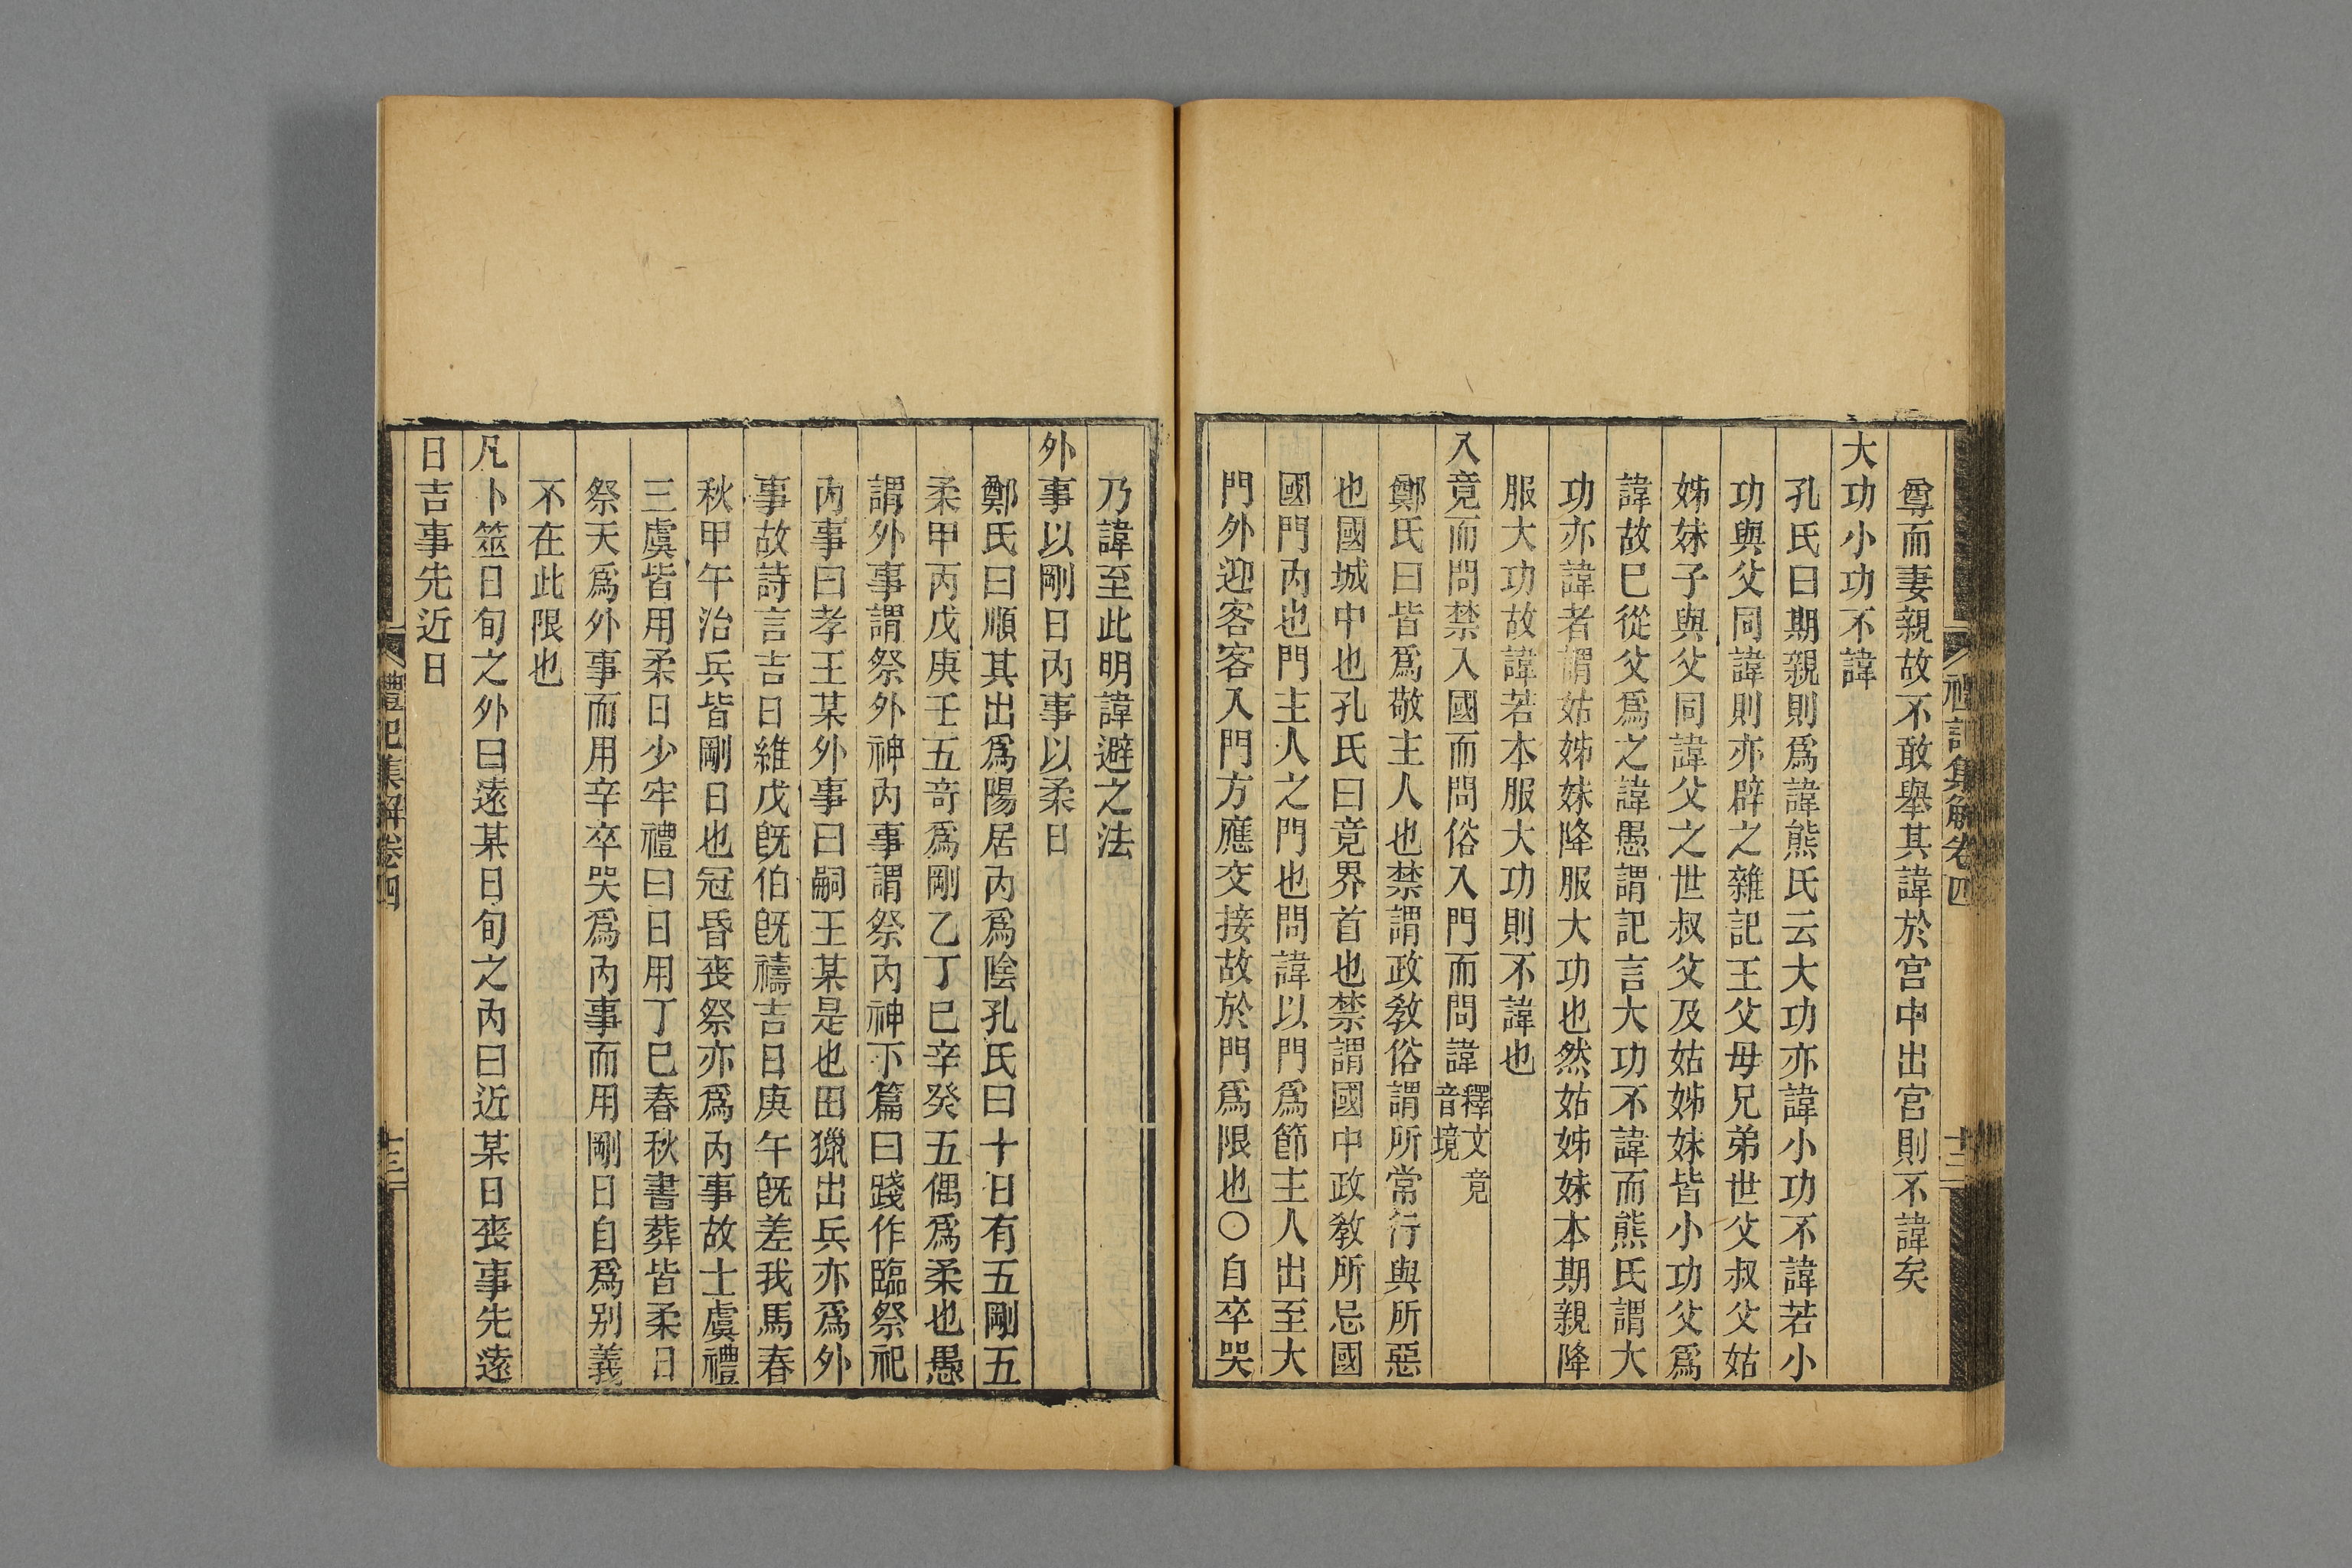 禮記集解卷四
十二
尊而妻親故不敢舉其諱於宮中出宮則不諱矣
大功小功不諱
孔氏曰期親則爲諱熊氏云大功亦諱小功不諱若小
功與父同諱則亦辟之雜記王父母兄弟世父叔父姑
姊妹子與父同諱父之世叔父及姑姊妹皆小功父爲
諱故已從父爲之諱愚謂記言大功不諱而熊氏謂大
功亦諱者謂姑姊妹降服大功也然姑姊妹本期親降
服大功故諱若本服大功則不諱也
入竟而問禁入國而問俗入門而問諱釋文竟音境
鄭氏曰皆爲敬主人也禁謂政敎俗謂所常行與所惡
也國城中也孔氏曰竟界首也禁謂國中政敎所忌國
國門內也門主人之門也問諱以門爲節主人出至大
門外迎客客入門方應交接故於門爲限也〇自卒哭
乃諱至此明諱避之法
外事以剛日內事以柔日
鄭氏曰順其出爲陽居內爲陰孔氏曰十日有五剛五
柔甲丙戊庚壬五奇爲剛乙丁巳辛癸五偶爲柔也愚
謂外事謂祭外神內事謂祭內神下篇曰踐作臨祭祀
內事曰孝王某外事曰嗣王某是也田獵出兵亦爲外
事故詩言吉日維戊旣伯旣禱吉日庚午旣差我馬春
秋甲午治兵皆剛日也冠昏喪祭亦爲內事故士虞禮
三虞皆用柔日少牢禮曰日用丁巳春秋書葬皆柔日
祭天爲外事而用辛卒哭爲內事而用剛日自爲别義
不在此限也
凡卜筮日旬之外曰遠某日旬之內曰近某日喪事先遠
日吉事先近日
禮記集解卷四
十三